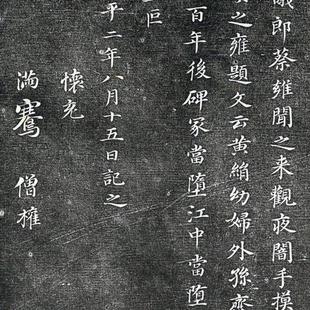 議郎蔡雍聞之来觀夜闇手摸
之雍題文云黄絹幼婦外孫齏
百年後碑冢當墮江中當墮
王叵
平二年八月十五日記之
懷充
滿騫 僧權